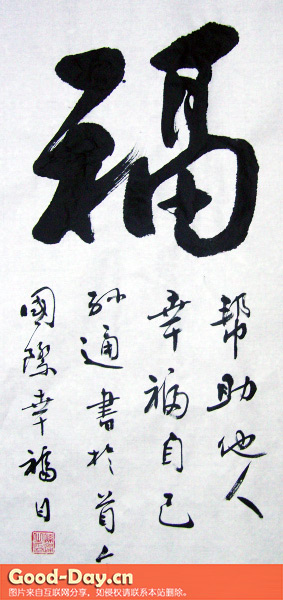 福
帮助他人
幸福自己
孙通書於首个
國際幸福日
Good-Day.cn
图片来自互联网分享，如侵权请联系本站删除。